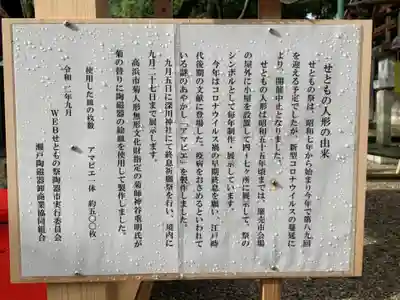 せともの人形の由来
せともの祭は、昭和七年から始まり今年で第八九回
を迎える予定でしたが、新型コロナウイルスの蔓延に
より、開催中止となりました。
せともの人形は昭和五十五年頃までは、廉売市会場
の屋外に小屋を設置して四~七ヶ所に展示して、祭の
シンボルとして毎年制作・展示しています。
今年はコロナウイルス禍の早期終息を願い、江戸時
代後期の文献に登場した、疫病をおさめるといわれて
いる謎のあやかし「アマビエ」を製作しました。
九月五日に深川神社にて終息祈願祭を行い、境内に
九月二十七日まで展示します。
高浜市菊人形無形文化財指定の菊師神谷重明氏が
菊の替りに陶磁器の絵皿を使用して製作しました。
使用した皿の枚数 アマビエ一体 約五〇〇枚
令和二年九月
WEBせともの祭陶器市実行委員会
瀬戸陶磁器卸商業協同組合